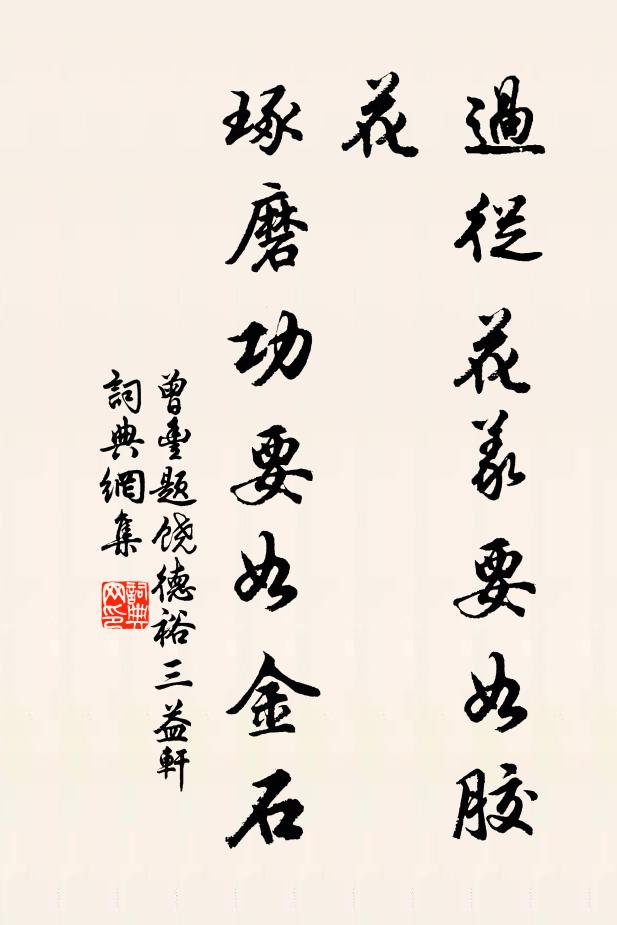 過從花義要如膠
花
琢磨功要如金石
曾豐題饒德裕三益軒
詞典網集
詞典网印